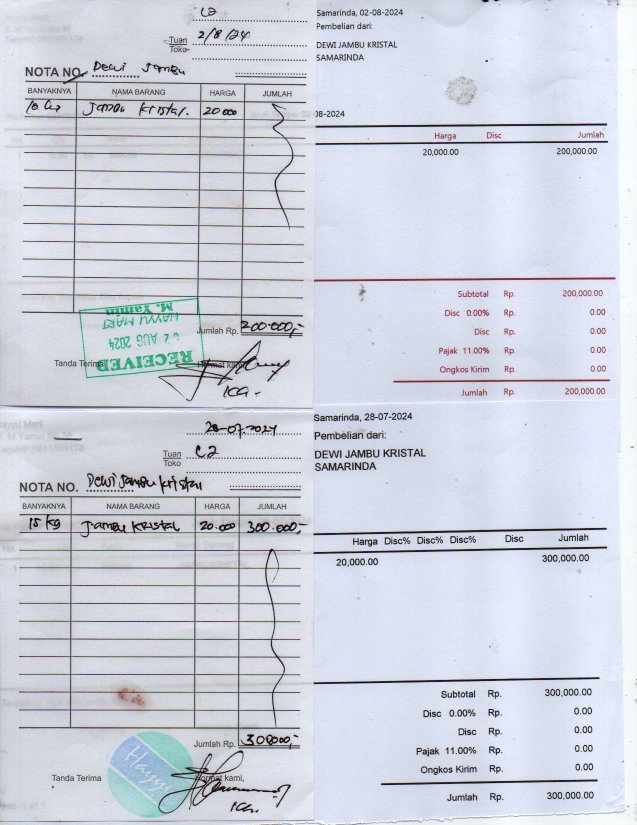 C2
Tuan
Toko
2/8/24
NOTA NO. Dewi Jambu
BANYAKNYA NAMA BARANG HARGA JUMLAH
10 kg Jambu Kristal. 20.000
Jumlah Rp. 200.000,-
RECEIVED
02 AUG 2024
HAYYU MART
M. Yamin
Tanda Terima Hormat kami,
Samarinda, 02-08-2024
Pembelian dari:
DEWI JAMBU KRISTAL
SAMARINDA
08-2024
Harga Disc Jumlah
20,000.00 200,000.00
Subtotal Rp. 200,000.00
Disc 0.00% Rp. 0.00
Disc Rp. 0.00
Pajak 11.00% Rp. 0.00
Ongkos Kirim Rp. 0.00
Jumlah Rp. 200,000.00
28-07-2024
Tuan
Toko
C2
NOTA NO. Dewi Jambu Kristal
BANYAKNYA NAMA BARANG HARGA JUMLAH
15 kg Jambu KRISTAL 20.000 300.000,-
Jumlah Rp. 300000,-
Hayyu
Tanda Terima Hormat kami,
Samarinda, 28-07-2024
Pembelian dari:
DEWI JAMBU KRISTAL
SAMARINDA
Harga Disc% Disc% Disc% Disc Jumlah
20,000.00 300,000.00
Subtotal Rp. 300,000.00
Disc 0.00% Rp. 0.00
Disc Rp. 0.00
Pajak 11.00% Rp. 0.00
Ongkos Kirim Rp. 0.00
Jumlah Rp. 300,000.00